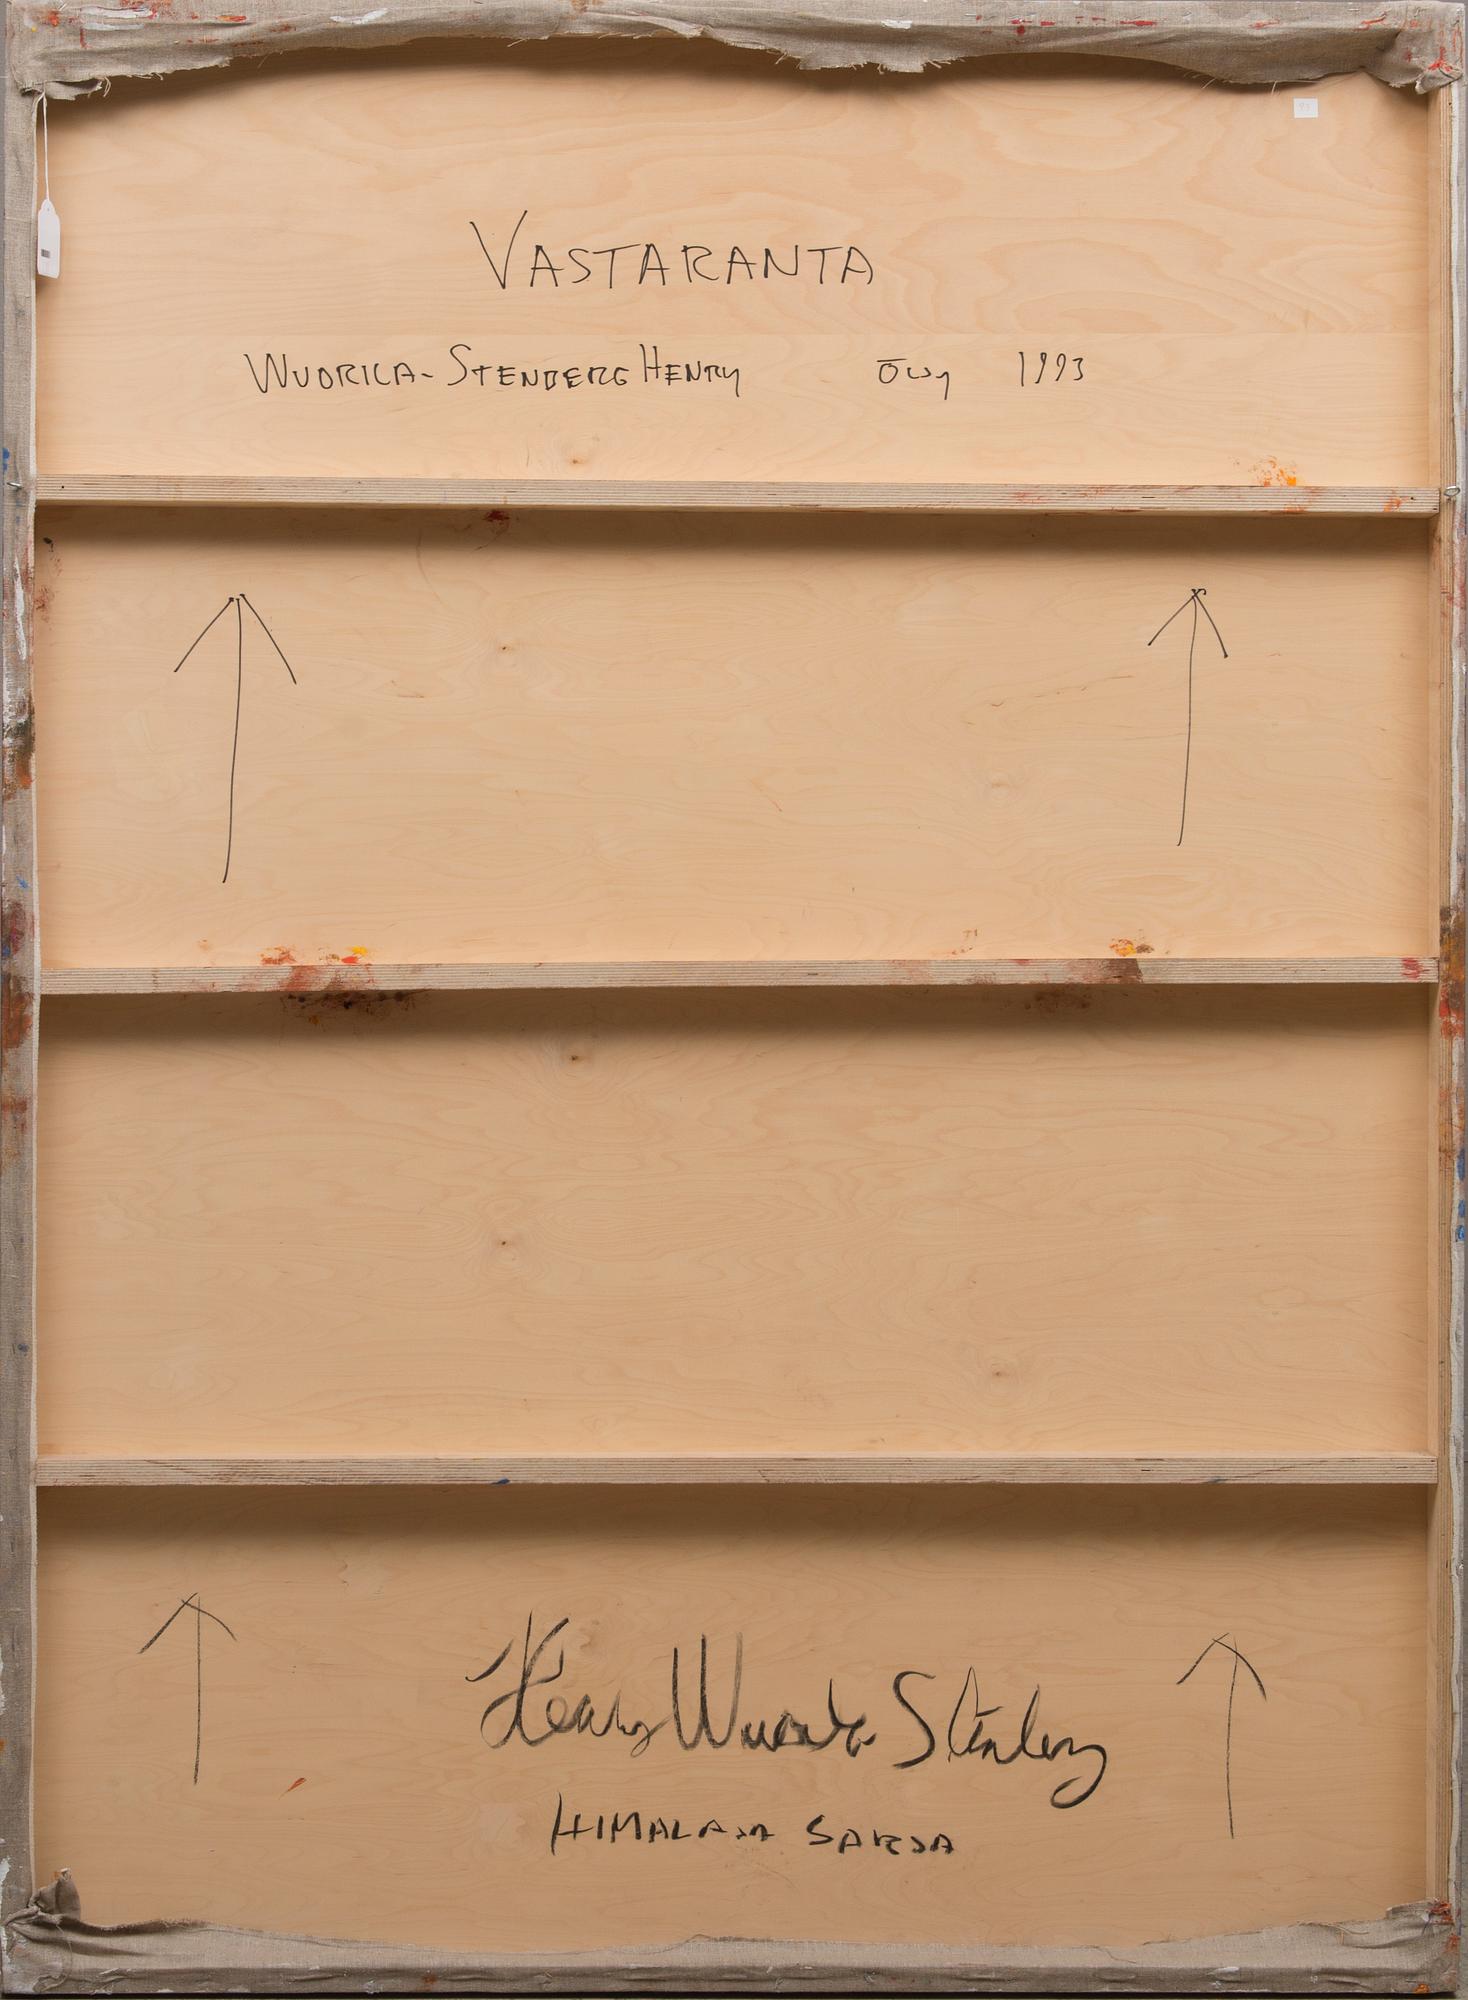 VASTARANTA
WUORILA-STENBERG HENRY ÖLJY 1993
Henry Wuorila Stenberg
HIMALAJA SARJA